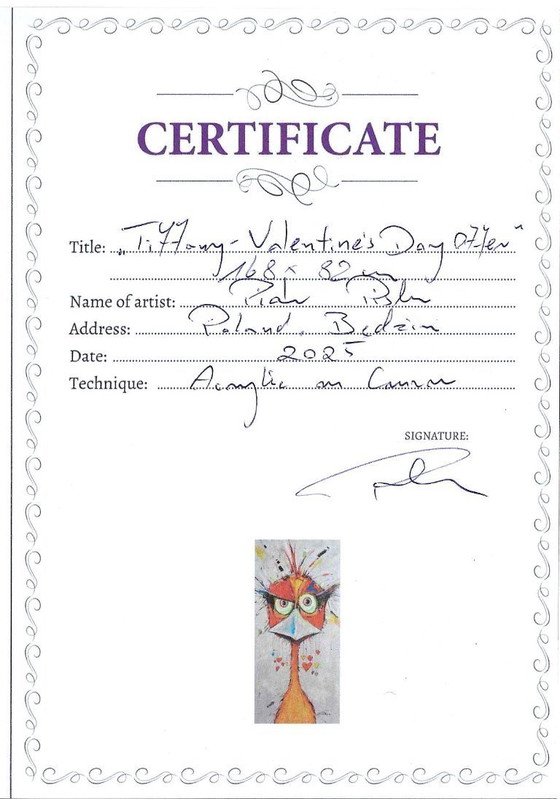 CERTIFICATE
Title: „Tiffany - Valentine's Day Offer"
168 x 82 cm
Name of artist:
Address: Poland, Będzin
Date: 2025
Technique: Acrylic on Canvas
SIGNATURE: